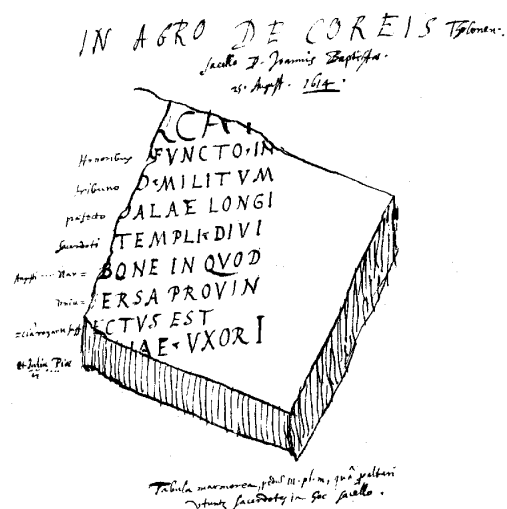 IN AGRO DE COREIS
Sacello D. Joannis Baptistae.
25. August. 1614.
RCAT
Honoribus FVNCTO, IN
tribuno O MILITVM
praefecto ALAE LONGI
Sacerdoti TEMPLI DIVI
Augusti Nar= BONE IN QVOD
ERSA PROVIN
ECTVS EST
et Julia Piae IAE VXORI
Tabula marmorea, pedis III. pl. m, quâ p altari
utuntur sacerdotes in hoc sacello.